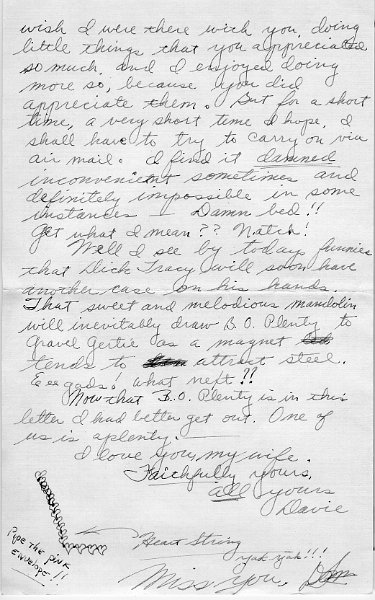 wish I were there with you, doing
little things that you appreciated
so much, and I enjoyed doing
more so, because you did
appreciate them. But for a short
time, a very short time I hope, I
shall have to try to carry on via
air mail. I find it damned
inconvenient sometimes and
definitely impossible in some
instances — Damn bed!!
Get what I mean?? Natch!
Well I see by todays funnies
that Dick Tracy will soon have
another case on his hands.
That sweet and melodious mandolin
will inevitably draw B.O. Plenty to
Gravel Gertie as a magnet
tends to attract steel.
Eeegods! what next?!!
Now that B.O. Plenty is in this
letter I had better get out. One of
us is aplenty.
I love you, my wife.
Faithfully yours,
All yours
Davie
Heart String
yuk yuk!!!
Pipe the pink
envelope!!
Miss You,